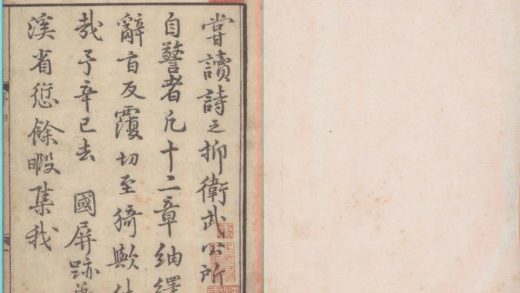 嘗讀詩之抑衛武公所
自警者凡十二章紬繹
辭旨反覆切至猗歟休
哉予辛巳去 國屏跡
溪省愆餘暇集我